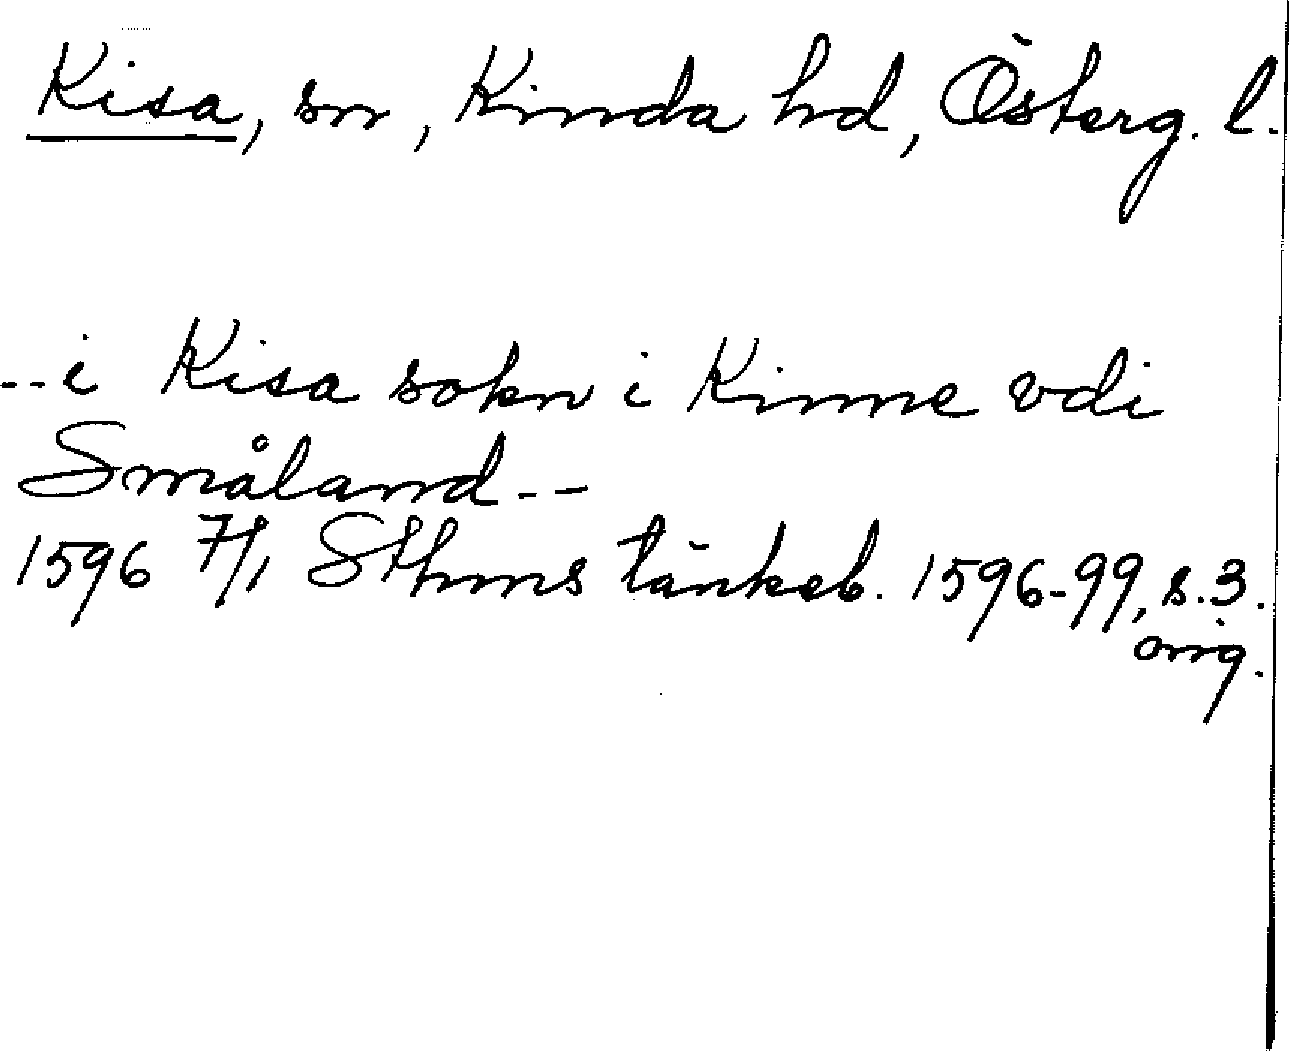 Kisa, sn, Kinda hd, Österg. l.
--i Kisa sokn i Kinne vdi
Småland--
1596 7/1 Sthms tänkeb. 1596-99, s.3.
orig.